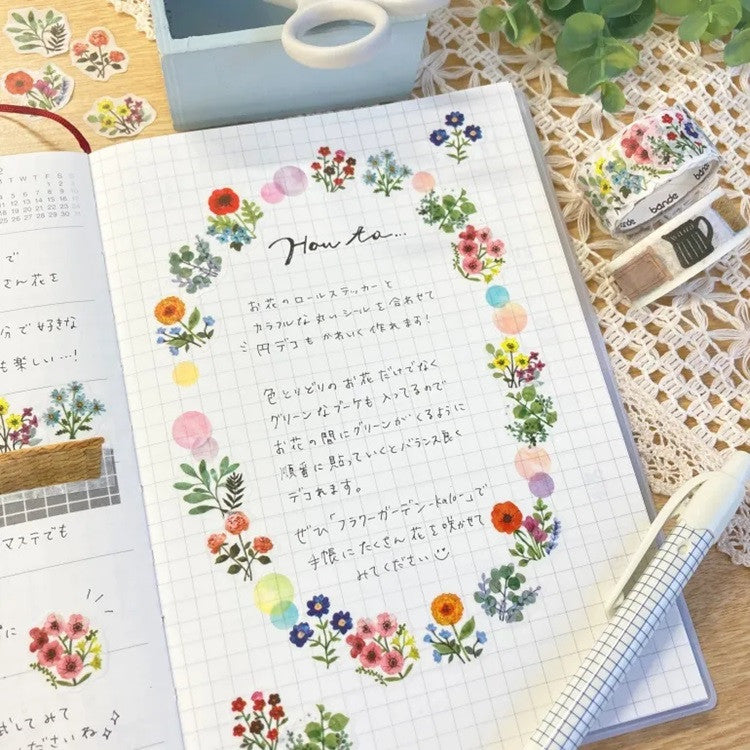 2
T W T F S
で
さん花を
分で好きな
も楽しい…!
マステでも
に
試してみて
くださいね
How to...
お花のロールステッカーと
カラフルな丸いシールを合わせて
円デコもかわいく作れます!
色とりどりのお花だけでなく
グリーンなブーケも入ってるので
お花の間にグリーンがくるように
順番に貼っていくとバランス良く
デコれます。
ぜひ「フラワーガーデン-kalo-」で
手帳にたくさん花を咲かせて
みてください
bande